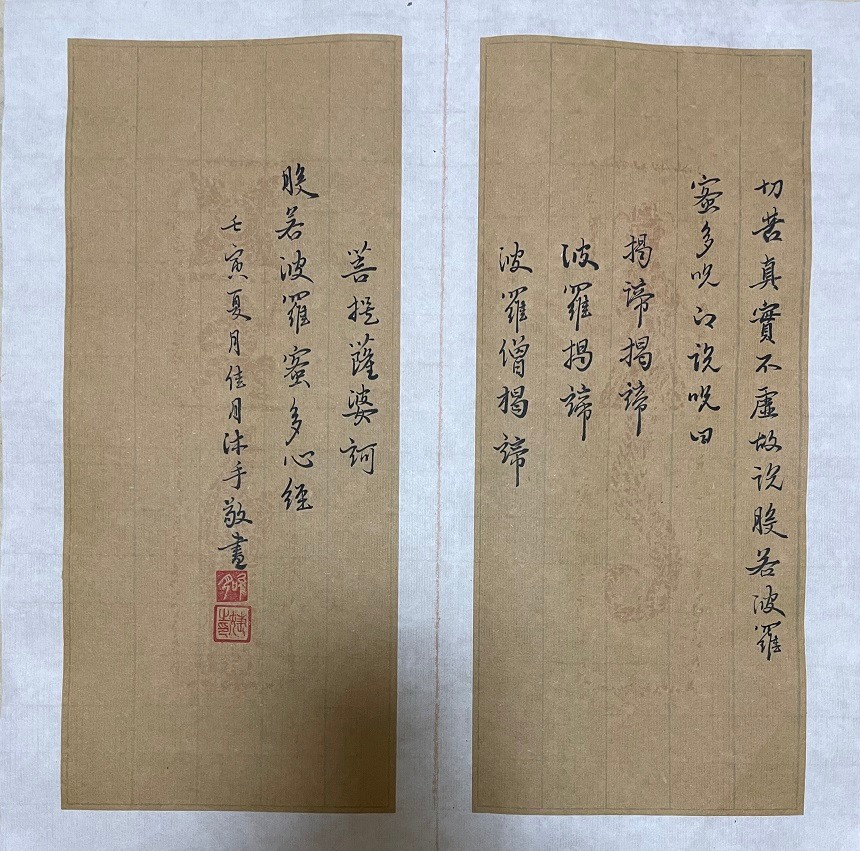 切苦真實不虛故説般若波羅
蜜多呪即説呪曰
揭諦揭諦
波羅揭諦
波羅僧揭諦
菩提薩婆訶
般若波羅蜜多心経
壬寅夏月佳月沐手敬書